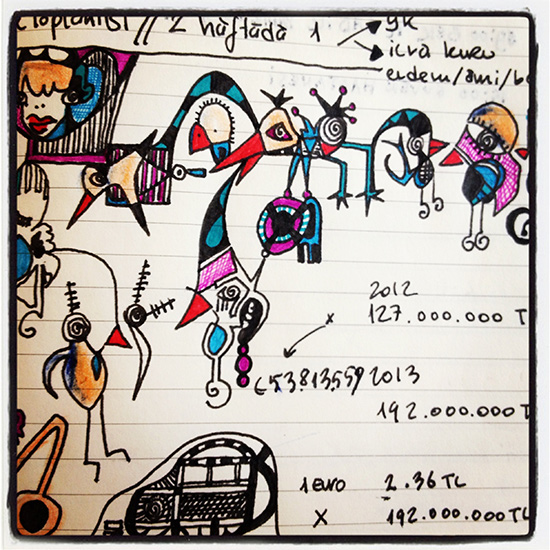 toplantısı // 2 haftada 1
YK
icra kuru
erdem/
2012
127.000.000 T
x
53.813.559 2013
192.000.000 T
1 euro 2.36 TL
x 192.000.000 TL